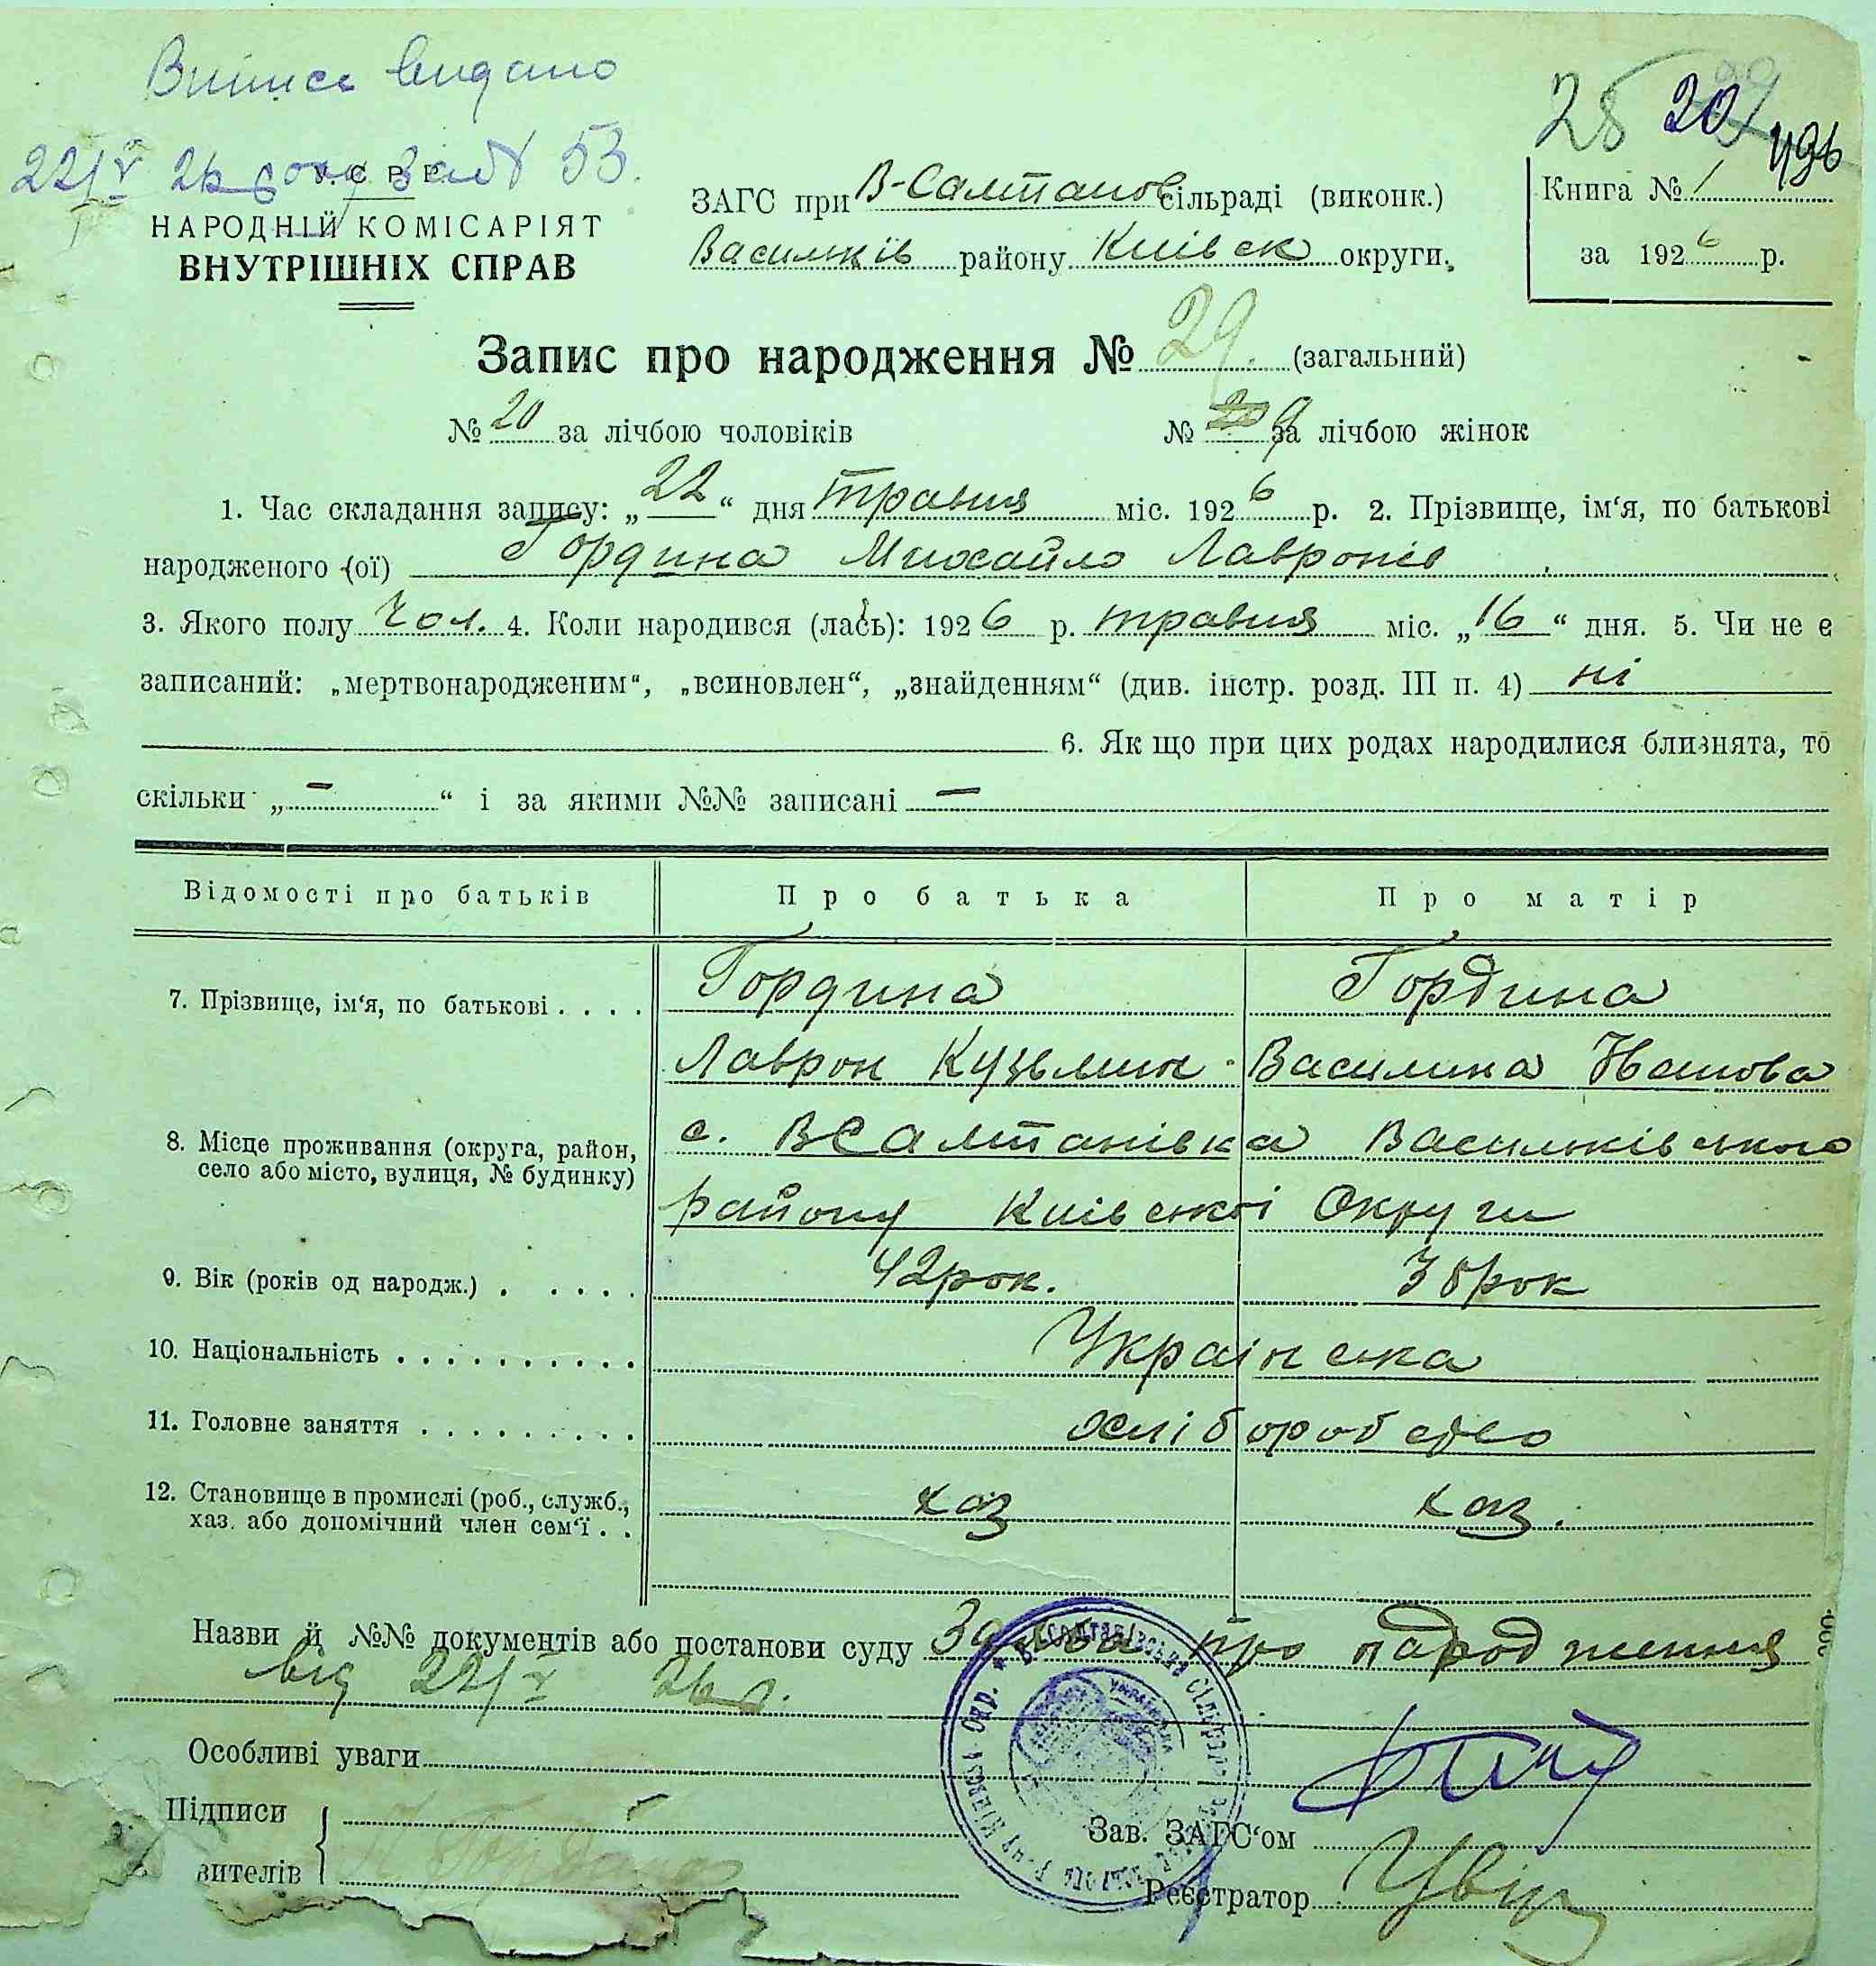 Випись видано
22/V 26 року за № 53.
У.С.Р.Р.
НАРОДНІЙ КОМІСАРІЯТ
ВНУТРІШНІХ СПРАВ
28 20 496
ЗАГС при В-Салтанов сільраді (виконк.)
Васильків району Київськ округи.
Книга № 1
за 1926 р.
Запис про народження № 29. (загальний)
№ 20 за лічбою чоловіків
№ 9 за лічбою жінок
1. Час складання запису: „22“ дня травня міс. 1926 р. 2. Прізвище, ім‘я, по батькові
народженого (ої) Гордина Михайло Лавронів
3. Якого полу чол. 4. Коли народився (лась): 1926 р. травня міс. „16“ дня. 5. Чи не є
записаний: „мертвонародженим“, „всиновлен“, „знайденням“ (див. інстр. розд. III п. 4) ні
6. Як що при цих родах народилися близнята, то
скільки „ – “ і за якими №№ записані –
Відомості про батьків Про батька Про матір
7. Прізвище, ім‘я, по батькові . . . . Гордина Гордина
Лаврон Кузьмин Василина Иванова
8. Місце проживання (округа, район, с. ВСалтанівка Васильківського
село або місто, вулиця, № будинку)
району Київської Округи
9. Вік (років од народж.) . . . . . 42 рок. 38 рок
10. Національність . . . . . . . . . . Українська
11. Головне заняття . . . . . . . . . хліборобство
12. Становище в промислі (роб., служб., хаз хаз.
хаз. або допомічний член сем‘ї . .
Назви й №№ документів або постанови суду Заява про народження
від 22/V 26 р.
Особливі уваги
Підписи
Зав. ЗАГС‘ом
вителів
Реєстратор